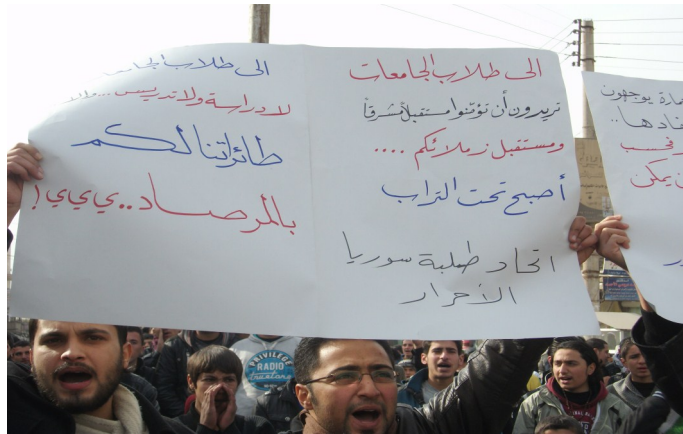 الى طلاب الجامعات
تريدون أن تؤمّنوا مستقبلاً مشرقاً
ومستقبل زملائكم ....
أصبح تحت التراب
اتحاد طلبة سوريا
الأحرار
الى طلاب
لا دراسة ولا تدريس ...
طائراتنا لكم
بالمرصاد..ي ي ي!
يوجهون
يمكن
PRIVILEGE
RADIO